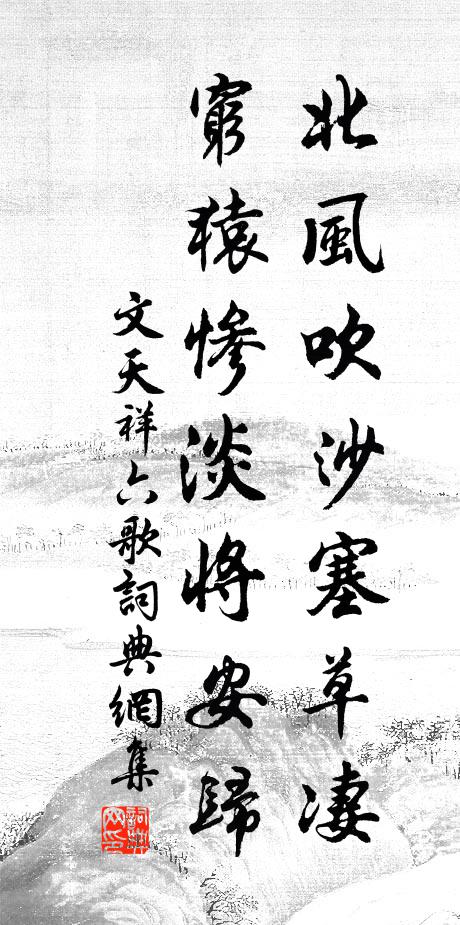 北風吹沙塞草凄
窮猿慘淡將安歸
文天祥六歌詞典網集